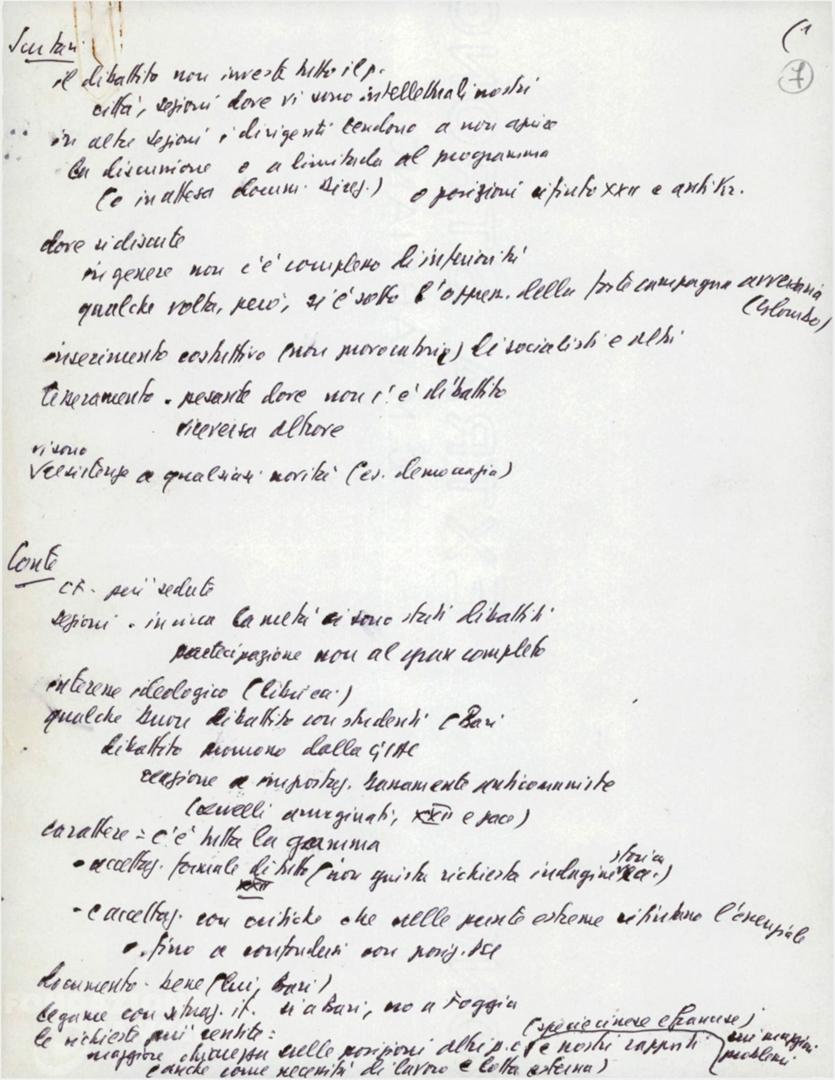 (1
7
Scutari
il dibattito non investe tutto il p.
città, sezioni dove vi sono intellettuali nostri
in altre sezioni i dirigenti tendono a non aprire
la discussione o a limitarla al programma
(o in attesa docum. Direz.) o posizioni rifiuto XXII e antiKr.
dove si discute
in genere non c'è complesso di inferiorità
qualche volta, però, si è sotto l'oppress. della forte campagna avversaria
(Colombo)
inserimento costruttivo (non provocatorio) di socialisti e altri
tesseramento - pesante dove non c'è dibattito
viceversa altrove
vi sono
resistenze a qualsiasi novità (es. democrazia)
Conte
CF - più sedute
sezioni - in circa la metà ci sono stati dibattiti
partecipazione non al gran completo
interesse ideologico
qualche buon dibattito con studenti (Bari
dibattito promosso dalla GIAC
reazione a impostaz. banamente anticomuniste
(cervelli, XXII e pace)
carattere = c'è tutta la gamma
- accettaz. formale di tutto (non giusta richiesta indagine storica
XXII
- accettaz. con critiche che nelle punte estreme rifiutano l'essenziale
- fino a confondersi con posiz.
documento - bene (lui, Bari)
legame con situaz. it. si a Bari, no a Foggia
le richieste più sentite:
(specie cinese e francese)
maggiore chiarezza nelle posizioni altri p.c. e nostri rapporti
sui maggiori
problemi
(anche come necessità di lavoro e lotta esterna)